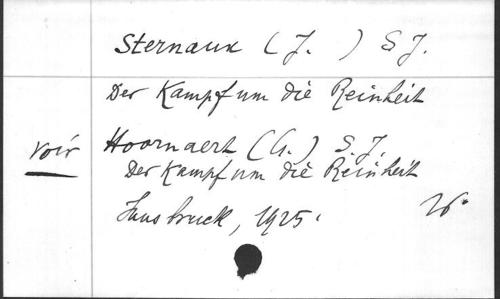 Sternaux (J. ) S J.
Der Kampf um die Reinheit
voir Hoornaert (G.) S. J.
Der Kampf um die Reinheit
Innsbruck, 1925.